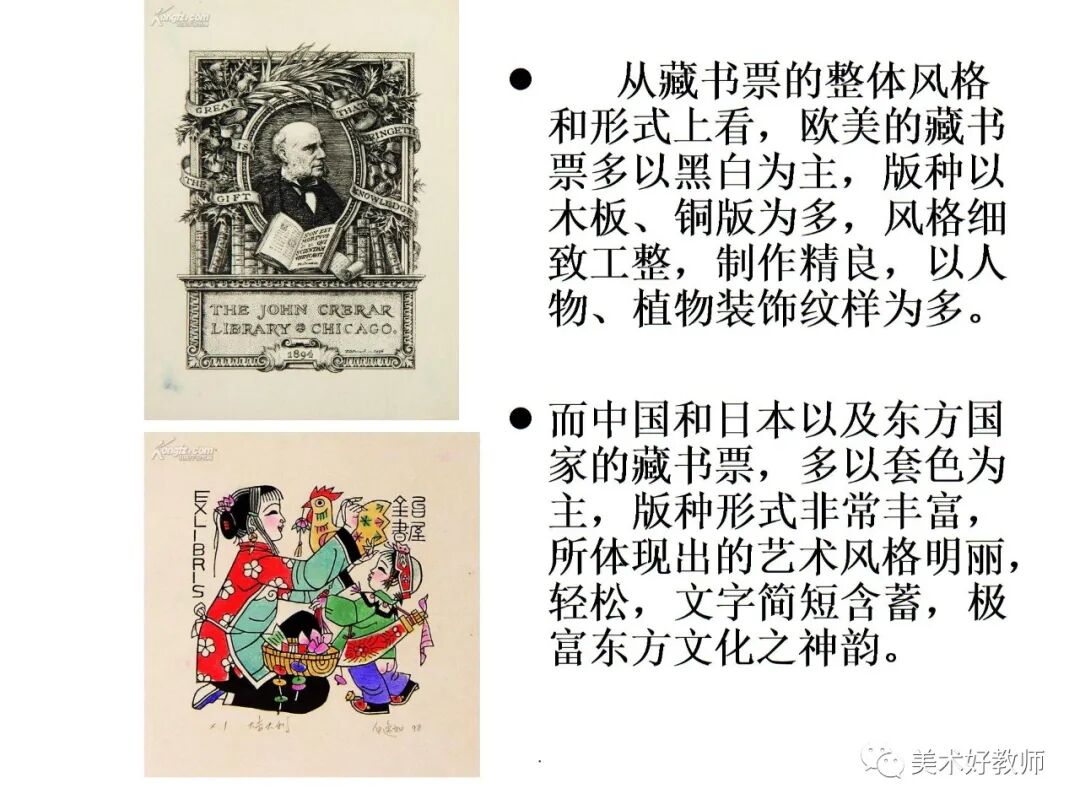 Kongfz.com
GREAT IS THE GIFT THAT BRINGETH KNOWLEDGE
NON EST
MORTVVS
QVI
SCIENTIAM
THE JOHN CRERAR
LIBRARY CHICAGO.
1894
Kongfz.com
EX LIBRIS
大吉大利
98
● 从藏书票的整体风格
和形式上看，欧美的藏书
票多以黑白为主，版种以
木板、铜版为多，风格细
致工整，制作精良，以人
物、植物装饰纹样为多。
● 而中国和日本以及东方国
家的藏书票，多以套色为
主，版种形式非常丰富，
所体现出的艺术风格明丽，
轻松，文字简短含蓄，极
富东方文化之神韵。
美术好教师